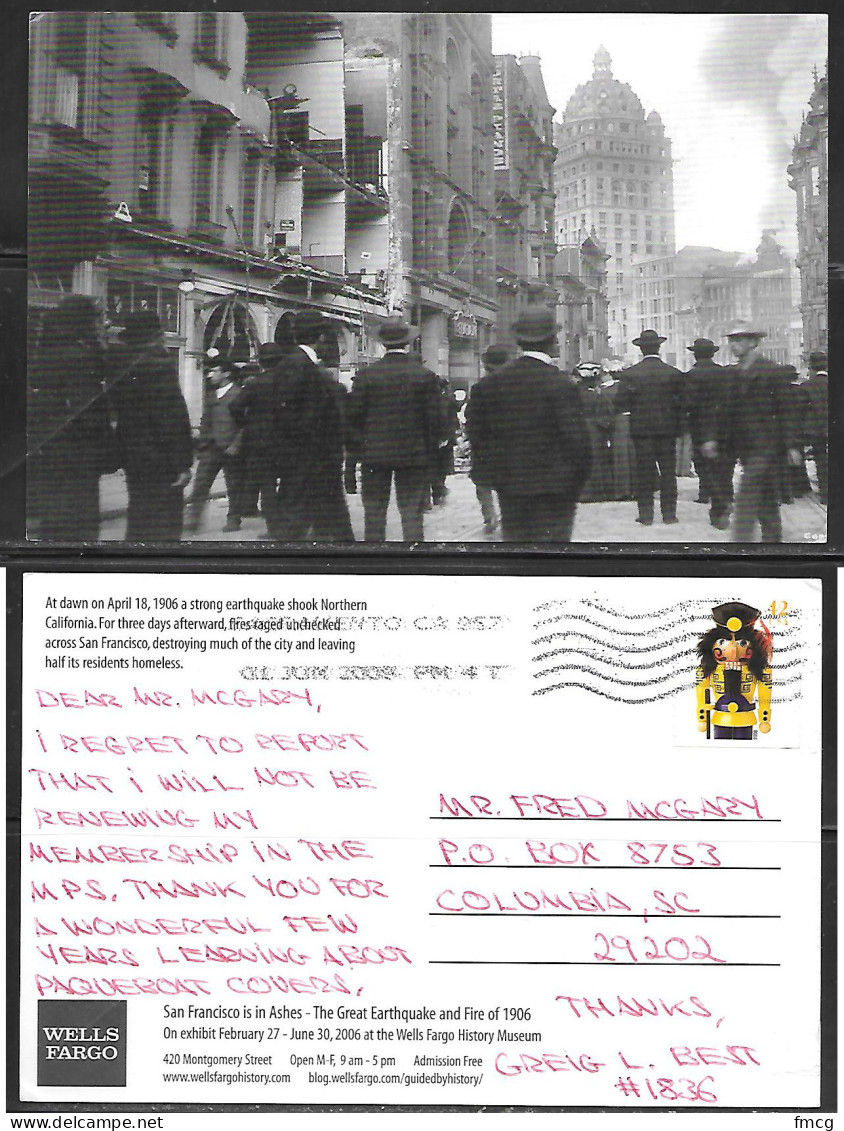 At dawn on April 18, 1906 a strong earthquake shook Northern
California. For three days afterward, fires raged unchecked
across San Francisco, destroying much of the city and leaving
half its residents homeless.
CA 957
01 JUN 2009 PM 4 T
42
DEAR MR. MCGARY,
I REGRET TO REPORT
THAT I WILL NOT BE
RENEWING MY
MEMBERSHIP IN THE
MPS. THANK YOU FOR
A WONDERFUL FEW
YEARS LEARNING ABOUT
PAQUEBOT COVERS.
MR. FRED MCGARY
P.O. BOX 8753
COLUMBIA, SC
29202
THANKS,
GREIG L. BEST
#1836
WELLS
FARGO
San Francisco is in Ashes - The Great Earthquake and Fire of 1906
On exhibit February 27 - June 30, 2006 at the Wells Fargo History Museum
420 Montgomery Street Open M-F, 9 am - 5 pm Admission Free
www.wellsfargohistory.com blog.wellsfargo.com/guidedbyhistory/
fmcg